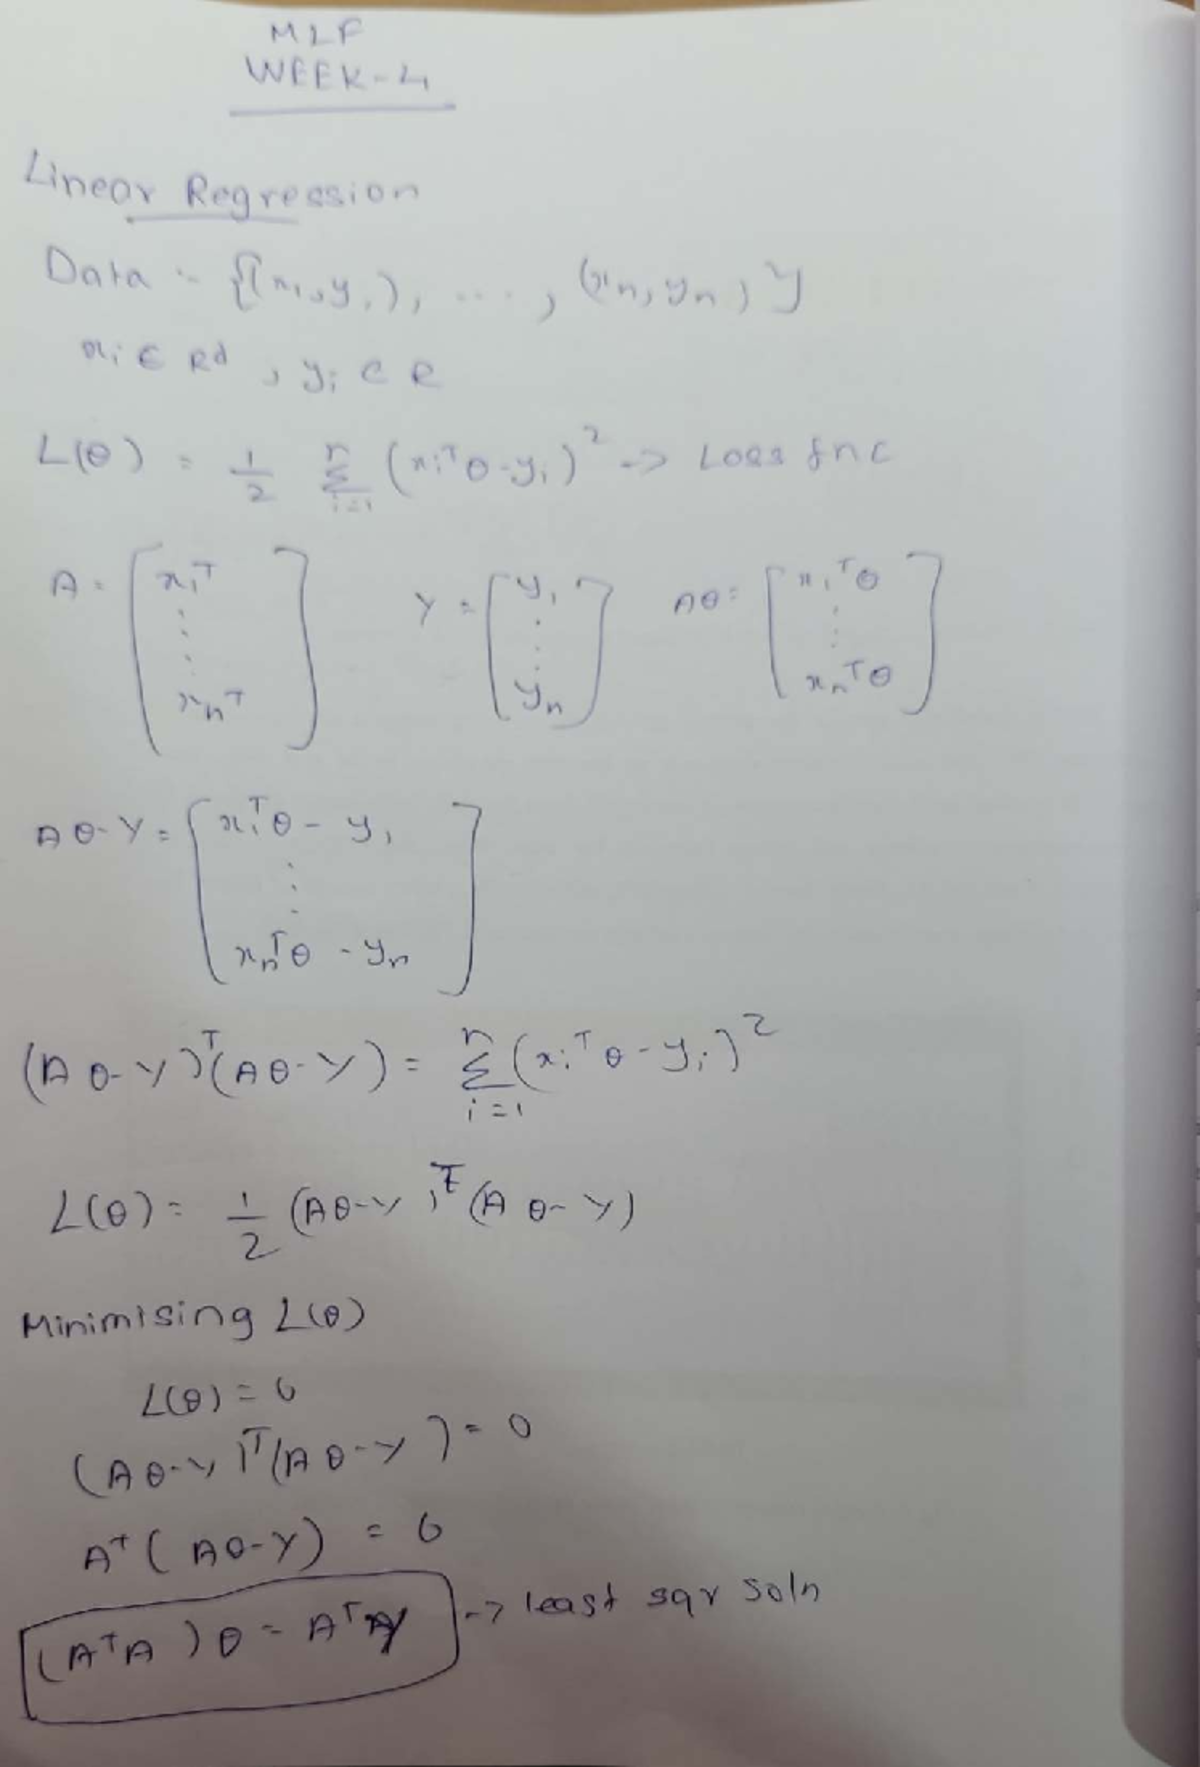 MLF
WEEK-4
Linear Regression
Data - {(x₁,y₁), ...., (xn,yn)}
xi ∈ Rd, yi ∈ R
L(θ) = 1/2 Σ_{i=1}^{n} (xiᵀθ-yi)² -> Loss fnc
A = [x₁ᵀ ⋮ xnᵀ] Y = [y₁ ⋮ yn] Aθ = [x₁ᵀθ ⋮ xnᵀθ]
Aθ-Y = [x₁ᵀθ - y₁ ⋮ xnᵀθ - yn]
(Aθ-Y)ᵀ(Aθ-Y) = Σ_{i=1}^{n} (xiᵀθ-yi)²
L(θ) = 1/2 (Aθ-Y)ᵀ(Aθ-Y)
Minimising L(θ)
L(θ) = 0
(Aθ-Y)ᵀ(Aθ-Y) = 0
Aᵀ(Aθ-Y) = 0
(AᵀA)θ = AᵀY -> least sqr soln